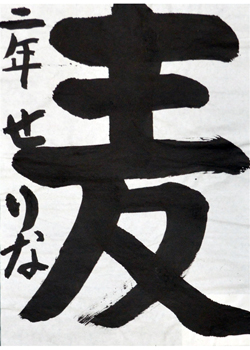 麦
二年 せりな